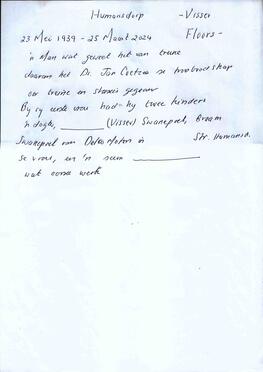 Humansdorp -Visser
23 Mei 1939 - 25 Maart 2024 Floors-
'n Man wat geweet het van treine
daarom het Dr. Jan Coetzee se troubroodskap
oor treine en stasies gegaan
By sy eerste vrou had hy twee kinders
'n dogter, ________ (Visser) Swanepoel, Braam
Swanepoel van Delta Motors in Str. Humansd.
se vrou, en 'n seun ________
wat oorsee werk